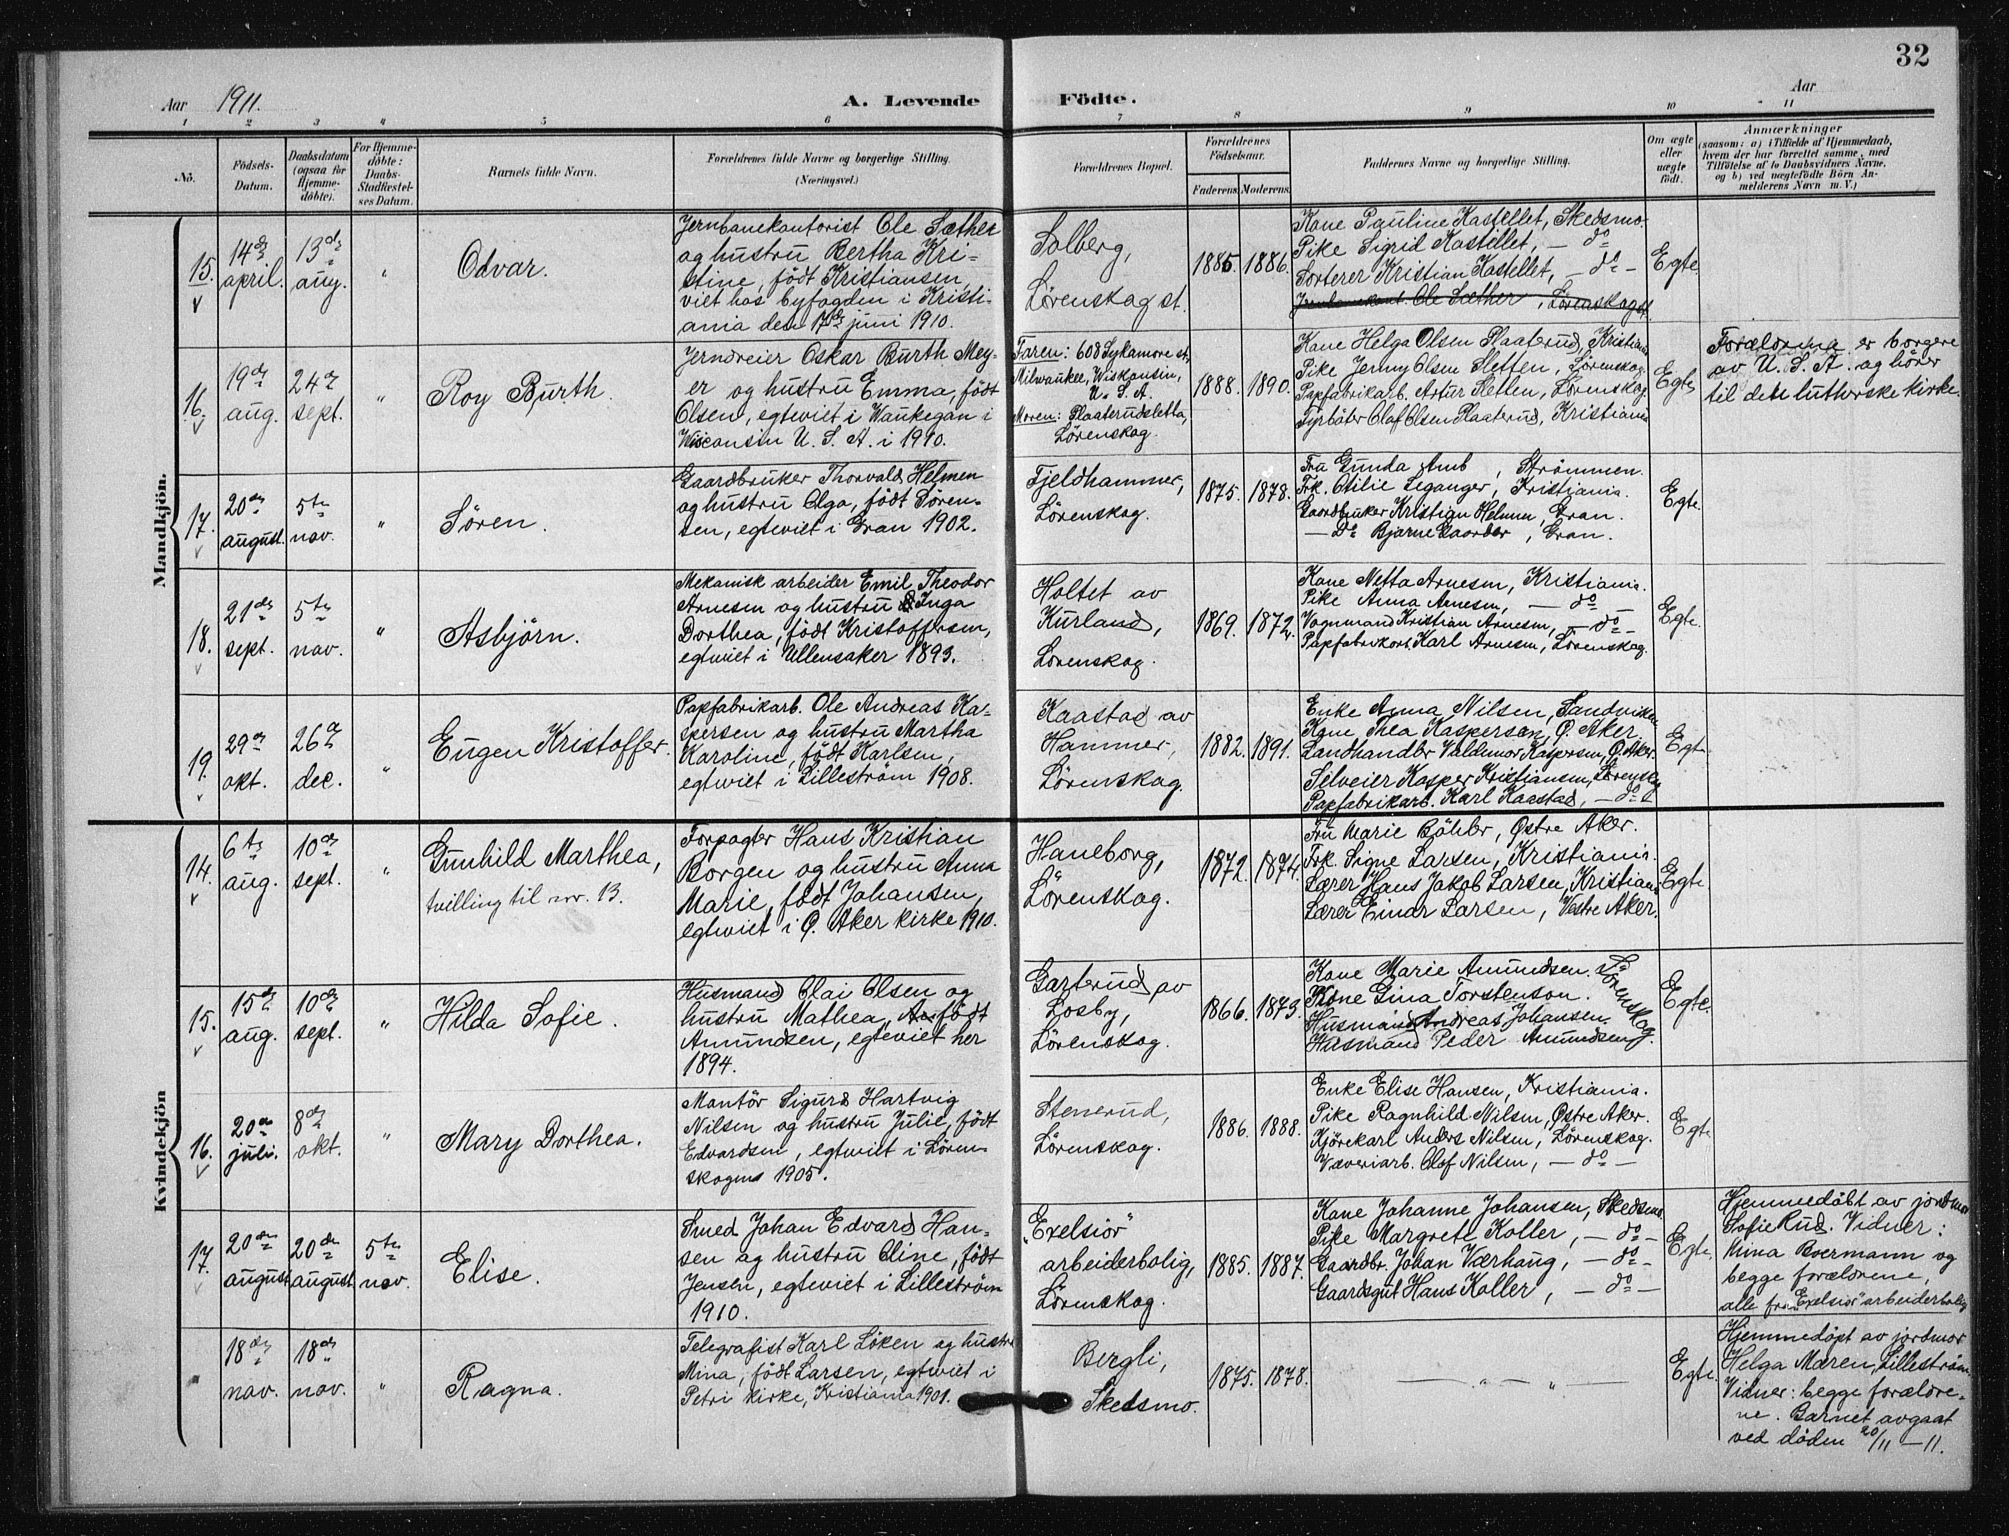 32
Aar 1911.
A. Levende Födte.
Aar
1 2 3 4 5 6 7 8 9 10 11
No.
Födsels-
Datum.
Daabsdatum
(ogsaa for
Hjemme-
döbte).
For Hjemme-
döbte:
Daabs-
Stadfæstel-
ses Datum.
Barnets fulde Navn.
Forældrenes fulde Navne og borgerlige Stilling.
(Næringsvei.)
Forældrenes Bopæl.
Forældrenes
Födselsaar.
Faderens.
Moderens.
Faddernes Navne og borgerlige Stilling.
Om ægte
eller
uægte
født.
Anmærkninger
(saasom: a) i Tilfælde af Hjemmedaab,
hvem der har forrettet samme, med
Tilföielse af to Daabsvidners Navne,
og b) ved uegtefödte Börn An-
melderens Navn m. V.)
Mandkjön.
15.
14de
april.
13de
aug.
"
Odvar.
Jernbanekontorist Ole Sæther
og hustru Bertha Kri-
stine, født Kristiansen,
viet hos byfogden i Kristi-
ania den 17de juni 1910.
Solberg,
Lörenskog st.
1885.
1886.
Kone Pauline Kastellet, Skedsmo.
Pike Sigrid Kastellet, — do
Sorterer Kristian Kastellet, — do —
Jernbanekont. Ole Sæther, Lörenskog st.
Egte.
16.
19de
aug.
24de
sept.
"
Roy Burth.
Jerndreier Oskar Burth Mey-
er og hustru Emma, född
Olsen, egteviet i Waukegan i
Wisconsin U. S. A. i 1910.
Faren: 608 Sykamore st.
Milwaukee, Wiskonsin,
U. S. A.
Moren: Plaaterudsletta,
Lörenskog.
1888.
1890.
Kone Helga Olsen Plaaterud, Kristiania
Pike Jenny Olsen Sletten, Lörenskog.
Papfabrikarb. Artur Sletten, Lörenskog.
Fyrböter Olaf Olsen Plaaterud, Kristiania
Egte
Forældrene er borgere
av U. S. A. og hörer
til den lutherske kirke.
17.
20de
august.
5te
nov.
"
Sören.
Gaardbruker Thorvald Helmen
og hustru Olga, född Sören-
sen, egteviet i Gran 1902.
Fjeldhammer,
Lörenskog.
1875.
1878.
Fru Gunda Amb, Strömmen.
Frk. Otilie Leganger, Kristiania.
Gaardbruker Kristian Helmen, Gran.
— Do Bjarne Gaarder, Gran.
Egte.
18.
21de
sept.
5te
nov.
"
Asbjörn.
Mekanisk arbeider Emil Theodor
Arnesen og hustru Inga
Dorthea, född Kristoffersen,
egteviet i Ullensaker 1893.
Holtet av
Kurland,
Lörenskog.
1869.
1872.
Kone Netta Arnesen, Kristiania.
Pike Anna Arnesen, — do —
Vognmand Kristian Arnesen, — do —
Papfabrikarb. Karl Arnesen, Lörenskog.
Egte.
19.
29de
okt.
26de
dec.
"
Eugen Kristoffer.
Papfabrikarb. Ole Andreas Ka-
spersen og hustru Martha
Karoline, född Karlsen,
egteviet i Lilleström 1908.
Kaastad av
Hammer,
Lörenskog.
1882.
1891.
Enke Anna Nilsen, Sandviken
Kone Thea Kaspersen, Ö. Aker
Landhandler Valdemar Kaspersen, Ö. Aker.
Selveier Kasper Kristiansen, Lörenskog
Papfabrikarb. Karl Kaastad, — do —
Egte
Kvindekjön
14.
6te
aug.
10de
sept.
"
Gunhild Marthea,
tvilling til nr. 13.
Forpagter Hans Kristian
Borgen og hustru Anna
Marie, född Johansen,
egteviet i Ö. Aker kirke 1910.
Haneborg,
Lörenskog.
1872.
1874.
Fru Marie Böhler, Östre Aker.
Frk. Signe Larsen, Kristiania.
Lærer Hans Jakob Larsen, Kristiania
Lærer Einar Larsen, Vestre Aker.
Egte.
15.
15de
aug.
10de
sept.
"
Hilda Sofie.
Husmand Olai Olsen og
hustru Mathea, född
Amundsen, egteviet her
1894.
Garterud av
Losby,
Lörenskog.
1866.
1873.
Kone Marie Amundsen.
Kone Gina Torstenson.
Husmand Andreas Johansen
Husmand Peder Amundsen
Lörenskog.
Egte.
16.
20de
juli.
8de
okt.
"
Mary Dorthea.
Montör Sigurd Hartvig
Nilsen og hustru Julie, född
Edvardsen, egteviet i Lören-
skogens 1905.
Stenerud,
Lörenskog.
1886.
1888.
Enke Elise Hansen, Kristiania.
Pike Ragnhild Nilsen, Östre Aker.
Kjörekarl Anders Nilsen, Lörenskog.
Væveriarb. Olaf Nilsen, — do —
Egte.
17.
20de
august
20de
august.
5te
nov.
Elise.
Smed Johan Edvard Han-
sen og hustru Oline, född
Jensen, egteviet i Lilleström
1910.
"Exelsiör"
arbeiderbolig,
Lörenskog.
1885.
1887.
Kone Johanne Johansen, Skedsmo.
Pike Margrete Koller, — do —
Gaardbr. Johan Værhaug, — do —
Gaardsgut Hans Koller, — do —
Egte.
Hjemmedöbt av jordmor
Sofie Rud. Vidner:
Anna Boermann og
begge forældrene,
alle fra "Exelsiör" arbeiderbolig
18de
nov.
18de
nov.
"
Ragna.
Telegrafist Karl Löken og hustru
Mina, född Larsen, egteviet i
Petri kirke, Kristiania 1901.
Bergli,
Skedsmo.
1875.
1878.
— " — " —
Egte.
Hjemmedöpt av jordmor
Helga Mæren, Lilleström
Vidner: begge forældre-
ne. Barnet avgaat
ved döden 20/11 — 11.